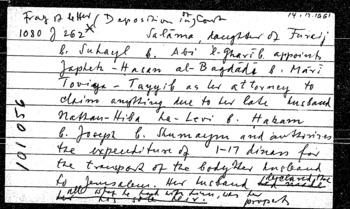 Frag of letter / Deposition in Court 14.
1080 J 262 Salāma, daughter of Faraj
b. Suhayl b. Abi l-Gharīb appoints
Japheth-Hasan al-Baghdādī b. Mārī
Toviya-Tayyib as her attorney to
claim anything due to her late husband
Nathan-Hiba ha-Levi b. Hakam
b. Joseph b. Shumaym and authorizes
the expenditure of 1-17 dinars for
the transport of the body of her husband
to Jerusalem. Her husband declared, that
all what he had with him, was her
property
101056